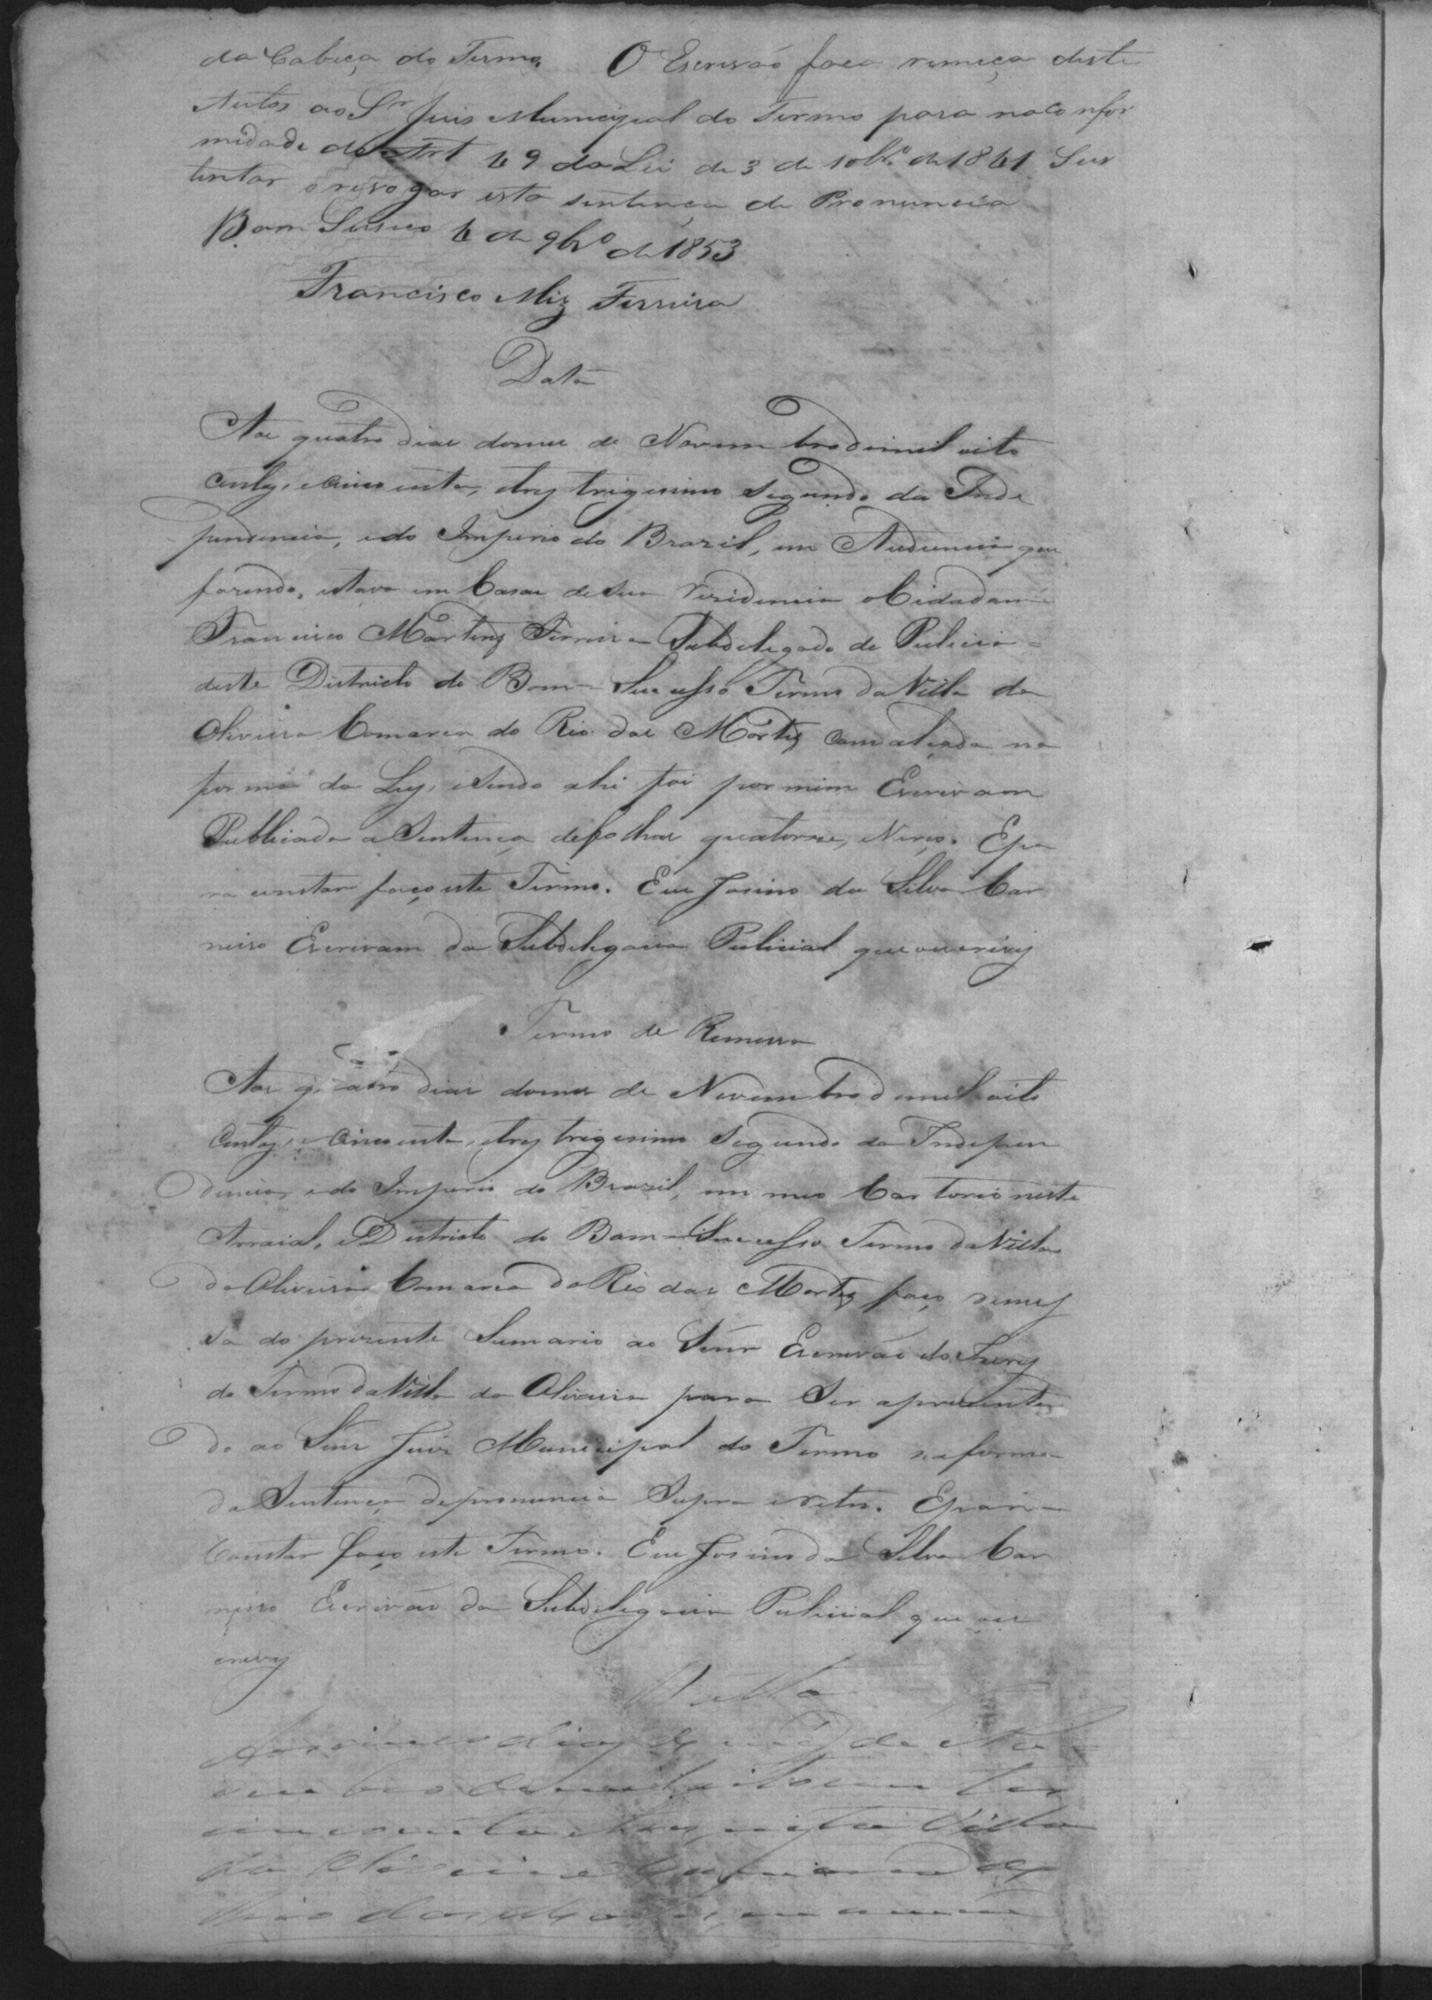 da Cabeça do Termo. O Escrivão faca remeça deste
Autos ao Sr Juis Municipal do Termo para na Confor
midade do Art 49 da Lei de 3 de 10br.o de 1841 Sus
tentar o revogar esta sentença de Pronuncia
Bom Suseco 4 de 9br.o de 1853
Francisco Miz Ferreira
Data
Aos quatro dias domes de Novem bro de mil oito
centos, e Cincoenta, etres trigesimo segundo da Inde
pendencia, e do Imperio do Brazil, em Audiencia que
fazendo, estava em Casas de sua residencia o Cidadam
Francisco Martins Ferreira Subdelegado de Policia
deste Districto do Bom Sucesso Termo da Villa da
Oliveira Comarca do Rio das Mortes Com alçada na
forma da Ley, e sendo ahi foi por mim Escrivam
Publicada a Sentença defolhas quatorze, Verço. Epa
ra constar faço este Termo. Eu Josino da Silva Car
neiro Escrivam da Subdelegacia Policial que o escrivy
Termo de Remessa
Aos quatro dias domes de Novembro de mil oito
Centos, e Cincoenta, etres trigesimo segundo da Indepen
dencia, e do Imperio do Brazil, em meu Cartorio neste
Arraial, e Districto do Bom Sucesso Termo da Villa
da Oliveira Comarca do Rio das Mortes faço remes
sa do prezente Sumario ao Senr Escrivão do Jury
do Termo da Villa da Oliveira para Ser aprezenta
do ao Senr Juiz Municipal do Termo na forma
da Sentença depronuncia Supra e retro. Epara
Constar faço este Termo. Eu Josino da Silva Car
neiro Escrivão da Subdelegacia Policial que o es
crevy
dias do de No
vembro de mil oito cen tos
cincoenta e tres nesta Villa
da Oliveira Comarca do
Rio das Mortes em